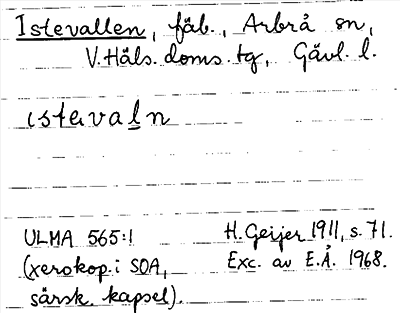 Istevallen, fäb., Arbrå sn,
V. Häls. doms. tg, Gävl. l.
ıstavaḻn
ULMA 565:1 H. Geijer 1911, s. 71.
(xerokop. i SOA, Exc. av E.Å. 1968.
särsk. kapsel).